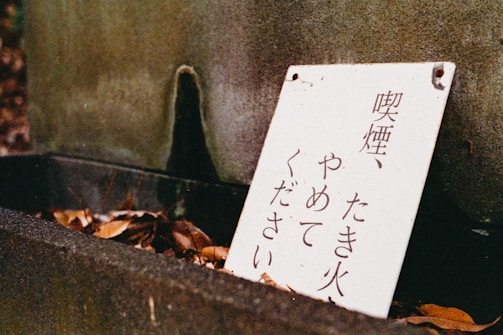 喫煙、
たき火、
やめて
ください